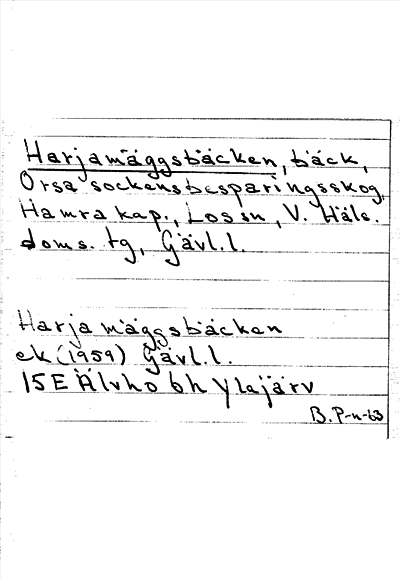 Harjamäggsbäcken, bäck,
Orsa sockensbesparingsskog,
Hamra kap., Los sn, V. Häls.
doms. tg, Gävl.l.
Harjamäggsbäcken
ek (1959) Gävl.l.
15E Älvho 6h Ylajärv
B. P-n-63